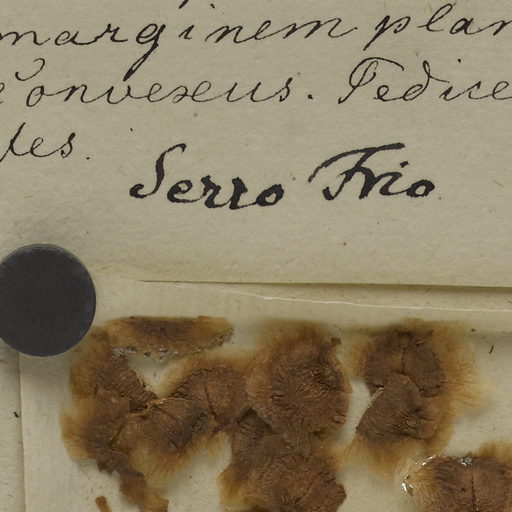 marginem plan
Convexus. Pedice
tes.
Serro Frio